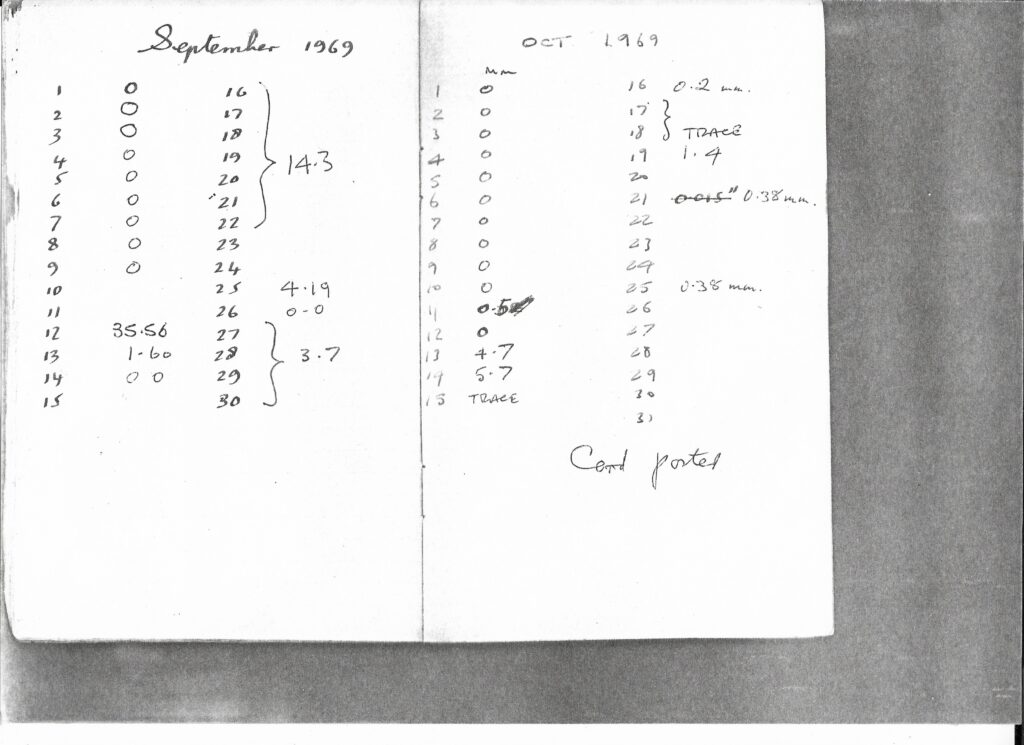 September 1969
1 0 16
2 0 17
3 0 18
4 0 19 14.3
5 0 20
6 0 21
7 0 22
8 0 23
9 0 24
10 25 4.19
11 26 0-0
12 35.56 27
13 1.60 28 3.7
14 0 0 29
15 30
OCT 1969
mm
1 0 16 0.2 mm.
2 0 17
3 0 18 TRACE
4 0 19 1.4
5 0 20
6 0 21 0.015" 0.38 mm.
7 0 22
8 0 23
9 0 24
10 0 25 0.38 mm.
11 0.5 26
12 0 27
13 4.7 28
14 5.7 29
15 TRACE 30
31
Card posted